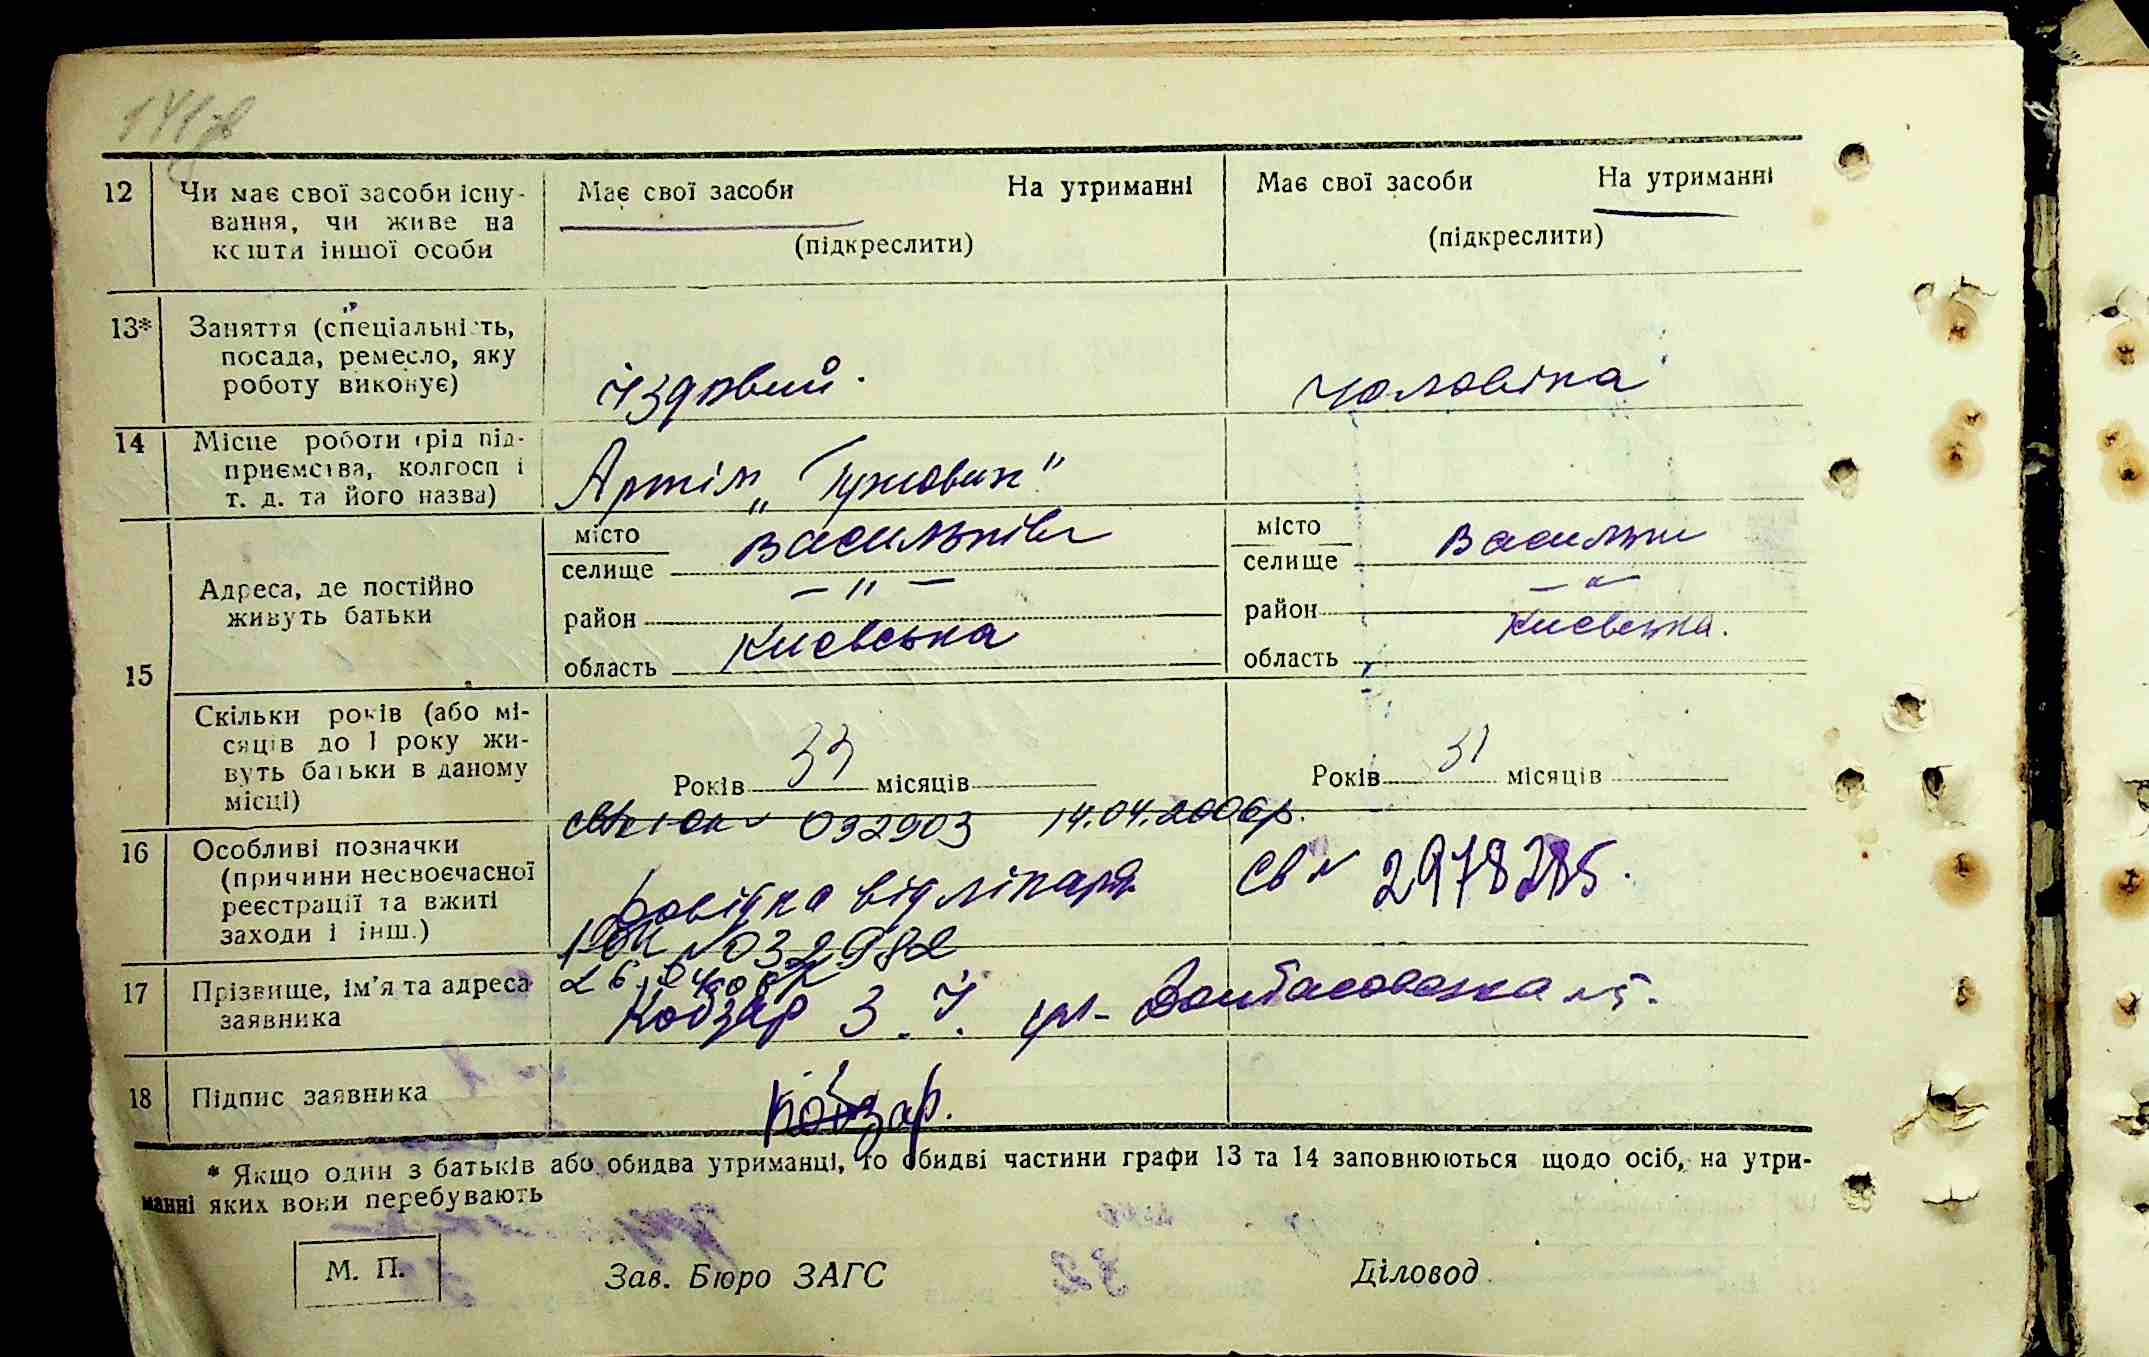 12 Чи має свої засоби існу- Має свої засоби На утриманні Має свої засоби На утриманні
вання, чи живе на
кошти іншої особи (підкреслити) (підкреслити)
13* Заняття (спеціальність,
посада, ремесло, яку
роботу виконує) Їздовий. Чоловіка
14 Місце роботи (рід під-
приємства, колгосп і
т. д. та його назва) Артіль „Гужовик"
15 Адреса, де постійно
живуть батьки
місто Васильків місто Васильки
селище селище
район — " — район — " —
область Києвська область Києвська.
Скільки років (або мі-
сяців до 1 року жи-
вуть батьки в даному
місці)
Років 33 місяців Років 31 місяців
032903 14.04.2006р.
16 Особливі позначки
(причини несвоєчасної
реєстрації та вжиті
заходи і інш.)
Довідка від лікаря Св №
№ 032982
17 Прізвище, ім'я та адреса
заявника
Кобзар З. Й. ул-
18 Підпис заявника Кобзар.
* Якщо один з батьків або обидва утриманці, то обидві частини графи 13 та 14 заповнюються щодо осіб, на утри-
манні яких вони перебувають
М. П. Зав. Бюро ЗАГС Діловод